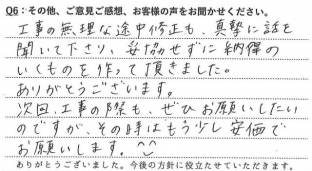 Q6：その他、ご意見ご感想、お客様の声をお聞かせください。
工事の無理な途中修正も、真摯に話を
聞いて下さり、妥協せずに納得の
いくものを作って頂きました。
ありがとうございます。
次回、工事の際も、ぜひお願いしたい
のですが、その時はもう少し安価で
お願いします。^^
ありがとうございました。今後の方針に役立たせていただきます。